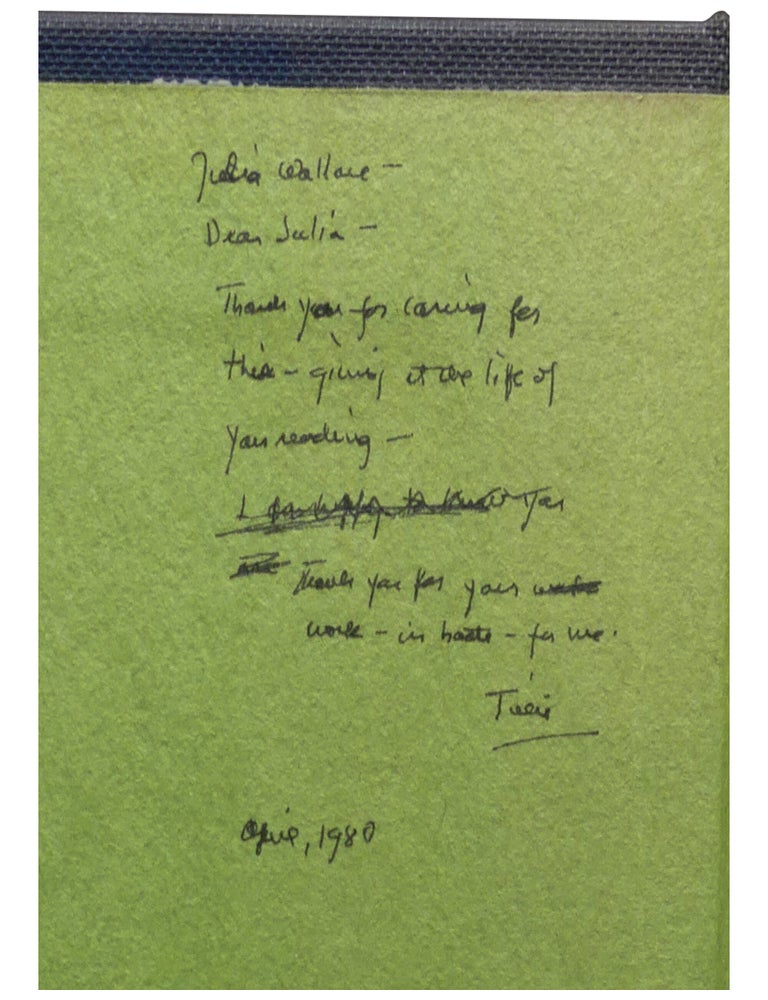 Julia Wallace –
Dear Julia –
Thank you for caring for
this – giving it the life of
your reading –
I am happy to know you
Thank you for your
work – in haste – for me.
Tillie
April, 1980